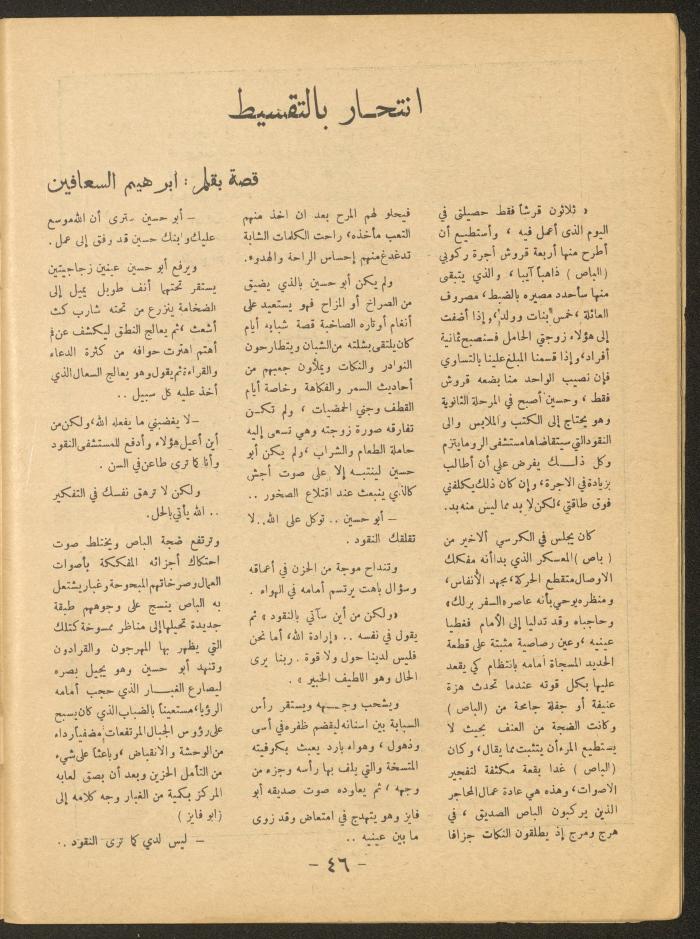 انتحار بالتقسيط
قصة بقلم : ابرهيم السعافين
« ثلاثون قرشاً فقط حصيلتي في
اليوم الذى أعمل فيه ، وأستطيع أن
أطرح منها أربعة قروش أجرة ركوبي
( الباص ) ذاهباً آيبا ، والذي يتبقى
منها سأحدد مصيره بالضبط ، مصروف
العائلة ، خمس بنات وولد ، وإذا أضفت
إلى هؤلاء زوجتي الحامل فسنصبح ثمانية
أفراد ، وإذا قسمنا المبلغ علينا بالتساوي
فإن نصيب الواحد منا بضعه قروش
فقط ، وحسين أصبح في المرحلة الثانوية
وهو يحتاج إلى الكتب والملابس والى
النقود التي سيتقاضاها مستشفى الرومايتزم
وكل ذلك يفرض علي أن أطالب
بزيادة في الاجرة ، وإن كان ذلك يكلفني
فوق طاقتي ، لكن لا بد مما ليس منه بد .
كان يجلس في الكرسي الاخير من
( باص ) المعسكر الذي بدا أنه مفكك
الاوصال متقطع الحركة ، مجهد الأنفاس ،
ومنظره يوحي بأنه عاصره السفر برلك »
وحاجباه وقد تدليا إلى الأمام فغطيا
عينيه ، وعين رصاصية مثبتة على قطعة
الحديد المسجاة أمامه بانتظام كي يقعد
عليها بكل قوته عندما تحدث هزة
عنيفة أو جفلة جامحة من ( الباص )
وكانت الضجة من العنف بحيث لا
يستطيع المرء أن يتثبت مما يقال ، وكان
( الباص ) غدا بقعة مكتظة لتفجير
الاصوات ، وهذه هي عادة عمال المحاجر
الذين يركبون الباص الصديق ، في
هرج ومرج إذ يطلقون النكات جزافا
فيحلو لهم المرح بعد ان اخذ منهم
التعب مأخذه ؛ راحت الكلمات الشابة
تدغدغ منهم إحساس الراحة والهدوء .
ولم يكن أبو حسين بالذي يضيق
من الصراخ أو المزاح فهو يستعيد على
أنغام أوتاره الصاخبة قصة شبابه أيام
كان يلتقى بشلته من الشبان ويتطارحون
النوادر والنكات ويملأون جعبهم من
أحاديث السمر والفكاهة وخاصة أيام
القطف وجني الحمضيات ، ولم تكن
تفارقه صورة زوجته وهي تسعى إليه
حاملة الطعام والشراب ، ولم يكن أبو
حسين لينتبه إلا على صوت أجش
كالذي ينبعث عند اقتلاع الصخور ..
– أبو حسين .. توكل على الله .. لا
تقلقك النقود .
وتنداح موجة من الحزن في أعماقه
وسؤال باهت يرتسم أمامه في الهواء .
« ولكن من أين سآتي بالنقود » ثم
يقول في نفسه .. « إرادة الله ، أما نحن
فليس لدينا حول ولا قوة . ربنا يرى
الحال وهو اللطيف الخبير » .
ويشحب وجهه ويستقر رأس
السبابة بين اسنانه ليقضم ظفره في أسى
وذهول ، وهواء بارد يعبث بكوفيته
المتسخة والتي يلف بها رأسه وجزء من
وجهه ، ثم يعاوده صوت صديقه أبو
فايز وهو يتهدج في امتعاض وقد زوى
ما بين عينيه ..
– أبو حسين سترى أن الله موسع
عليك وابنك حسين قد رفق إلى عمل .
ويرفع أبو حسين عينين زجاجيتين
يستقر تحتهما أنف طويل يميل إلى
الضخامة ينزرع من تحته شارب كث
أشعث ، ثم يعالج النطق ليكشف عن فم
أهتم اهترت حوافه من كثرة الدعاء
والقراءة ثم يقول وهو يعالج السعال الذي
أخذ عليه كل سبيل ..
– لا يغضبني ما يفعله الله ، ولكن من
أين أعيل هؤلاء وأدفع للمستشفى النقود
وأنا كما ترى طاعن في السن .
ولكن لا ترهق نفسك في التفكير
.. الله يأتي بالحل .
وترتفع ضجة الباص ويختلط صوت
احتكاك أجزائه المفككة بأصوات
العمال وصرخاتهم المبحوحة وغبار يشتعل
به الباص ينسج على وجوههم طبقة
جديدة تحيلها إلى مناظر ممسوخة كتلك
التي يظهر بها المهرجون والقرادون
وتنهد أبو حسين وهو يجيل بصره
ليصارع الغبار الذي حجب أمامه
الرؤيا ، مستعيناً بالضباب الذي كان يسبح
على رؤوس الجبال المرتفعات مضفياً رداء
من الوحشة والانقباض ، وباعثاً على شيء
من التأمل الحزين وبعد أن بصق لعابه
المركز بكمية من الغبار وجه كلامه إلى
( ابو فايز )
– ليس لدي كما ترى النقود ..
– ٤٦ –